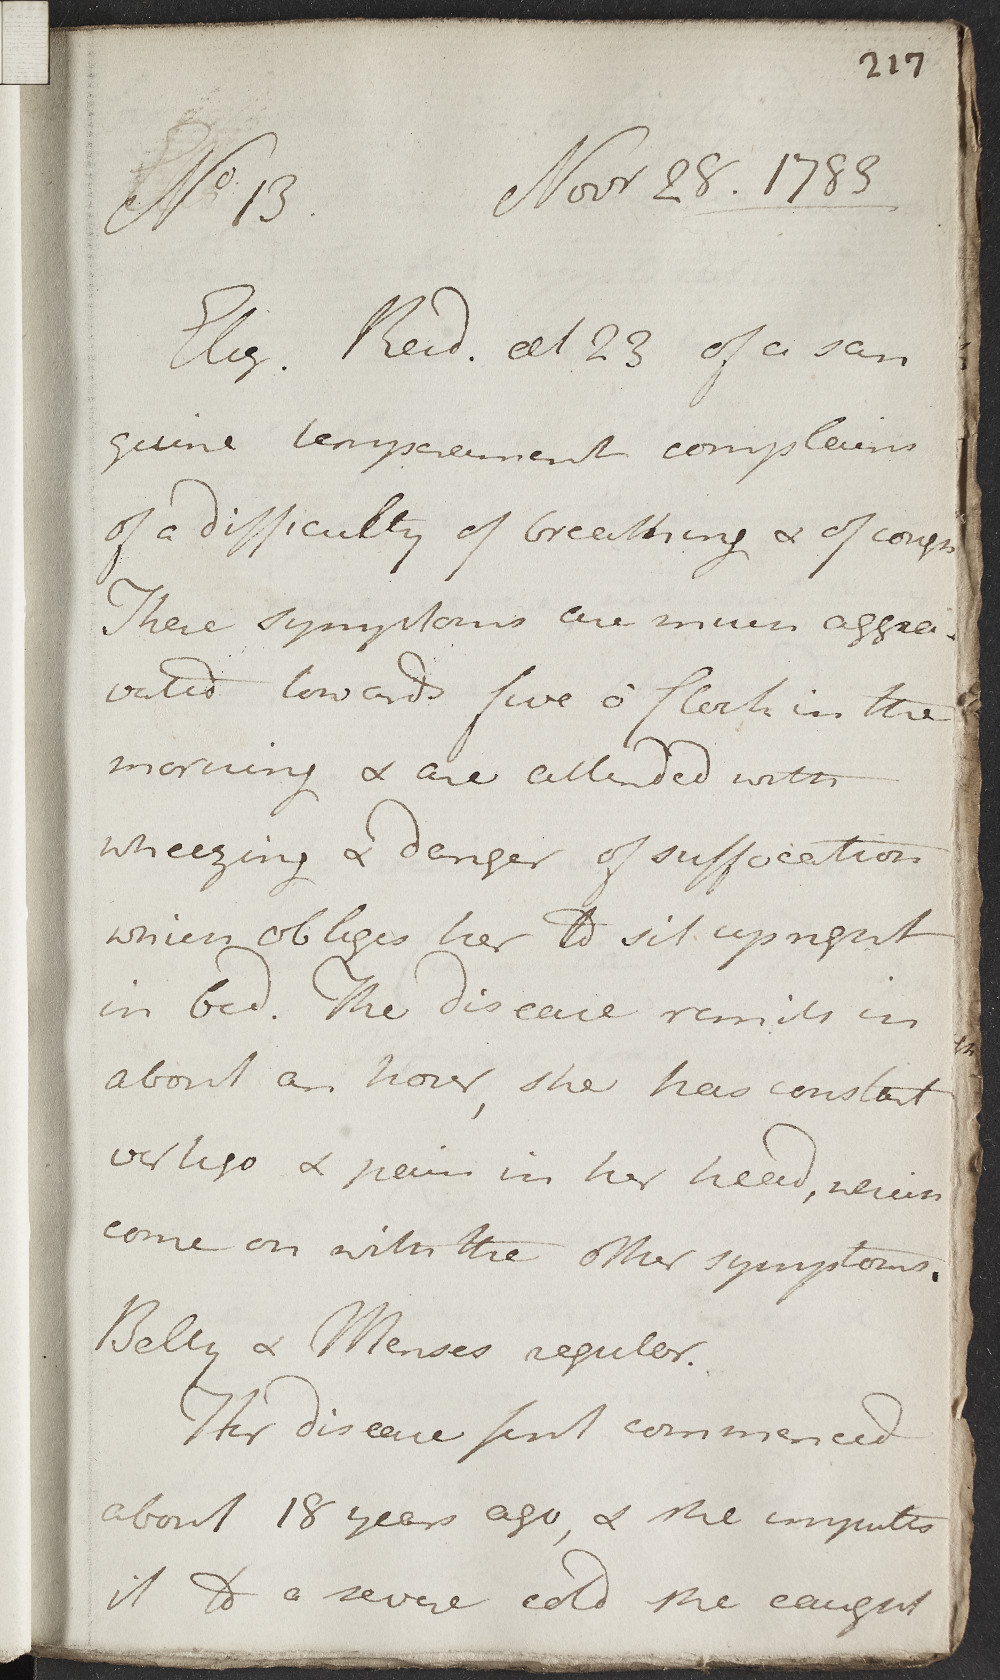 217
No 13. Novr 28. 1783
Eliz. Reid. æt 23 of a san
guine temperament complains
of a difficulty of breathing & of cough
These symptoms are much aggra-
vated towards five o Clock in the
morning & are attended with
wheezing & danger of suffocation
which obliges her to sit upright
in bed. The disease remits in
about an hour, she has constant
vertigo & pain in her head, which
come on with the other symptoms.
Belly & Menses regular.
This disease first commenced
about 18 years ago, & she imputes
it to a severe cold she caught